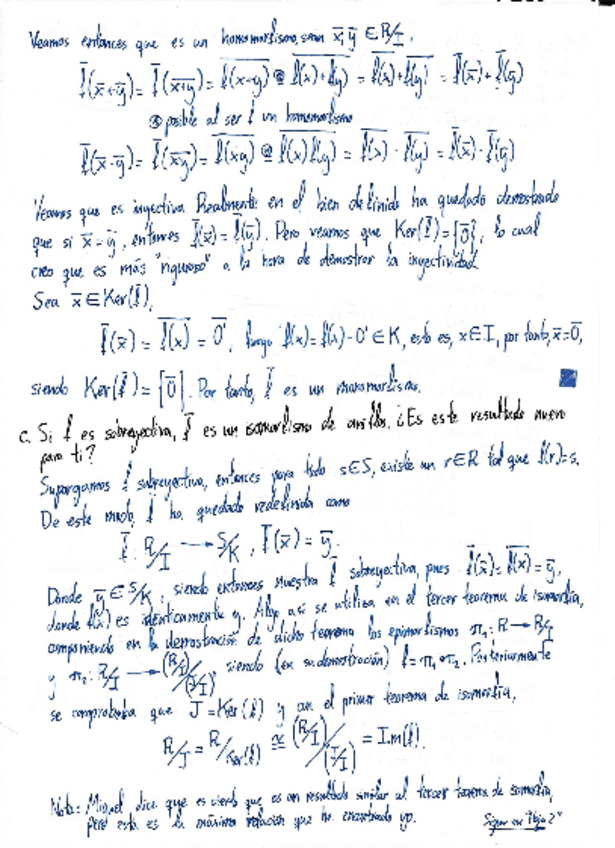 Veamos entonces que es un homomorfismo, sean x̄, ȳ ∈ R/I.
f̄(x̄+ȳ) = f̄(\overline{x+y}) = \overline{f(x+y)} ⊛ \overline{f(x)+f(y)} = \overline{f(x)}+\overline{f(y)} = f̄(x̄)+f̄(ȳ)
⊛ posible al ser f un homomorfismo
f̄(x̄·ȳ) = f̄(\overline{xy}) = \overline{f(xy)} ⊛ \overline{f(x)f(y)} = \overline{f(x)}·\overline{f(y)} = f̄(x̄)·f̄(ȳ)
Veamos que es inyectiva. Realmente en el bien definida ha quedado demostrado
que si x̄=ȳ, entonces f̄(x̄)=f̄(ȳ). Pero veamos que Ker(f̄)={0̄}, lo cual
creo que es más "riguroso" a la hora de demostrar la inyectividad.
Sea x̄ ∈ Ker(f̄),
f̄(x̄) = \overline{f(x)} = \overline{0'}, luego f(x)=f(x)-0' ∈ K, esto es, x∈I, por tanto, x̄=0̄,
siendo Ker(f̄)={0̄}. Por tanto, f̄ es un monomorfismo.
c. Si f es sobreyectiva, f̄ es un isomorfismo de anillos. ¿Es este resultado nuevo
para ti?
Supongamos f sobreyectiva, entonces para todo s∈S, existe un r∈R tal que f(r)=s.
De este modo, f̄ ha quedado redefinida como
f̄: R/I → S/K, f̄(x̄)=ȳ.
Donde ȳ ∈ S/K; siendo entonces nuestra f̄ sobreyectiva, pues f̄(x̄)=\overline{f(x)}=ȳ,
donde f(x) es idénticamente y. Algo así se utiliza en el tercer teorema de isomorfía,
componiendo en la demostración de dicho teorema los epimorfismos π₁: R → R/I
y π₂: R/I → (R/I)/(J/I), siendo (en su demostración) f=π₁∘π₂. Posteriormente
se comprobaba que J=Ker(f) y con el primer teorema de isomorfía,
R/J = R/Ker(f) ≅ (R/I)/(J/I) = Im(f).
Nota: Miguel dice que es cierto que es un resultado similar al tercer teorema de isomorfía,
pero esta es la máxima relación que he encontrado yo.
Sigue en "Hoja 2"